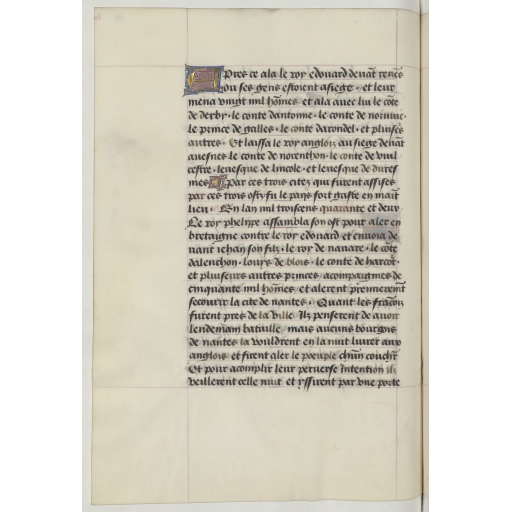 Apres ce ala le roy edouard deuāt renes
ou ses gens estoient asiege · et leur
mena vingt mil hōmes et ala auec lui le cōte
de derby · le conte dantonne · le conte de
le prince de galles · le conte darondel · et pluisēs
autres · Et laissa le roy anglois au siege deuāt
le conte de norenthon · le conte de
cestre · leuesque de lincole · et leuesque de dures
mes Par ces trois citez qui furent assises
par ces trois ostz fu le pays fort gaste en maīt
lieu · En lan mil troisens quarante et deux
Le roy phelippe assambla son ost pour aler en
bretaigne contre le roy edouard et enuoia de
uant iehan son filz · le roy de nauare · le cōte
dalenchon · louys de blois · le conte de harcot ·
et pluiseurs autres princes acompaignies de
cinquante mil hōmes et alerent premieremēt
secourir la cite de nantes · Quant les frācois
furent pres de la ville Ilz penserent de auoir
lendemain bataille mais aucuns bourgois
de nantes la vouldrent en la nuit liurer aux
anglois et firent aler le poeuple chūn couchr̄
Et pour acomplir leur peruerse Intention ilz
veillerent celle nuit et yssirent par vne porte